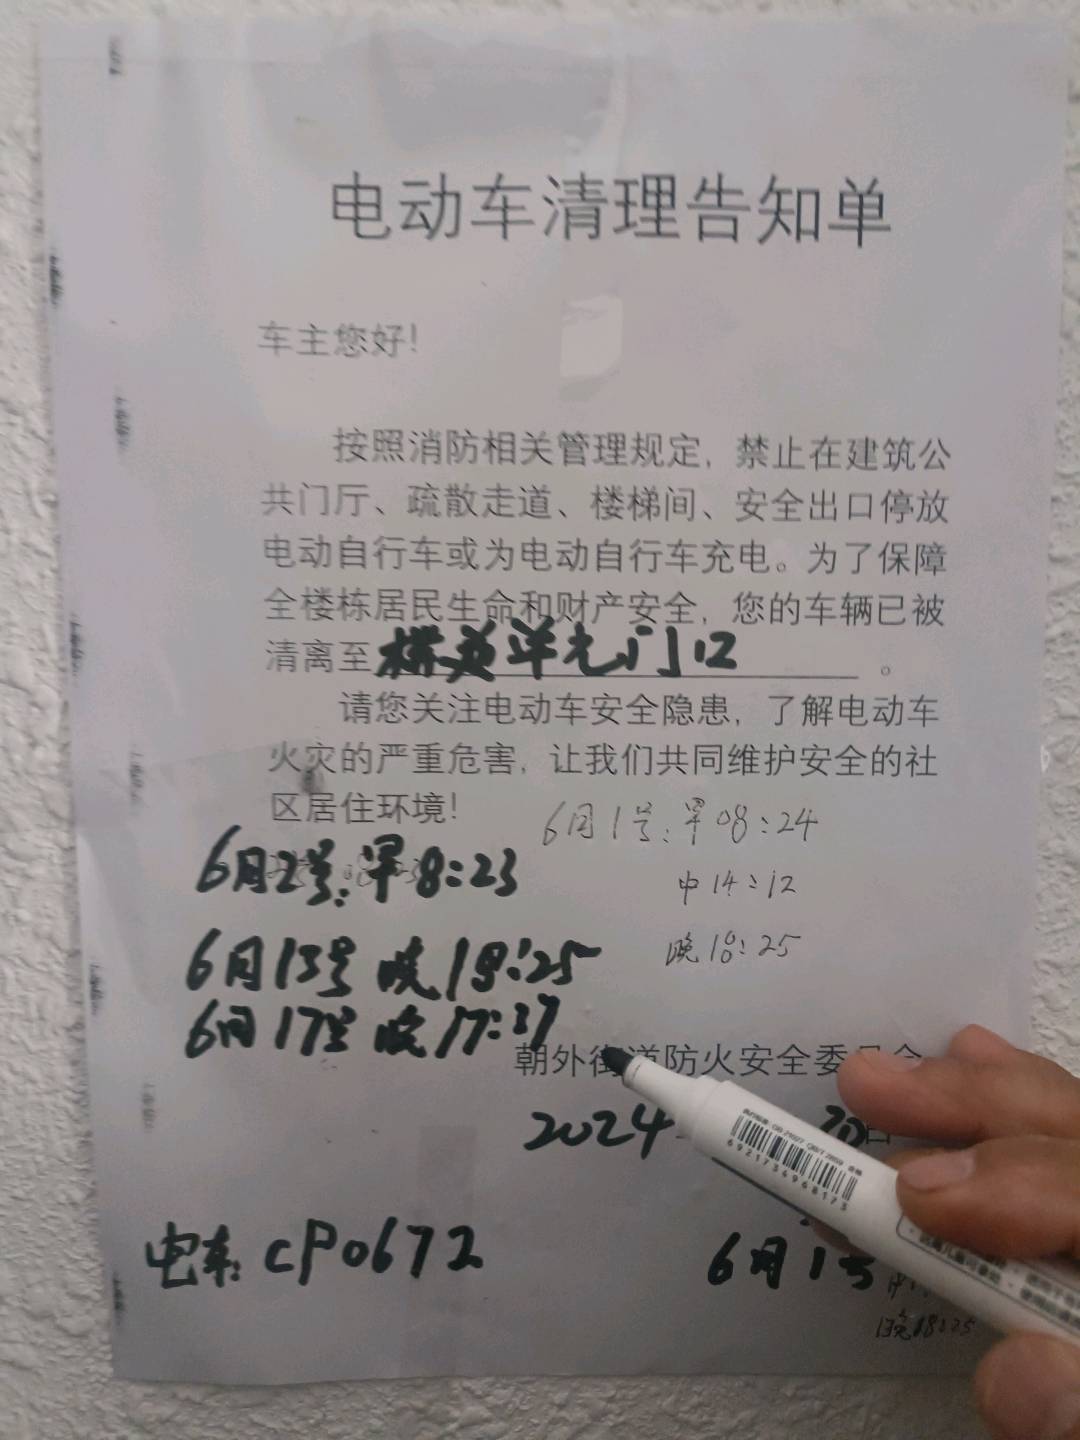 电动车清理告知单
车主您好!
按照消防相关管理规定,禁止在建筑公
共门厅、疏散走道、楼梯间、安全出口停放
电动自行车或为电动自行车充电。为了保障
全楼栋居民生命和财产安全,您的车辆已被
清离至 单元门口 。
请您关注电动车安全隐患,了解电动车
火灾的严重危害,让我们共同维护安全的社
区居住环境!
6月1号:早08:24
中14:12
晚18:25
6月2号:早8:23
6月13号 晚18:25
6月17号 晚17:37
朝外街道防火安全委员会
2024 日
电车:CP0672
6月1号
晚18:25
6921734968173